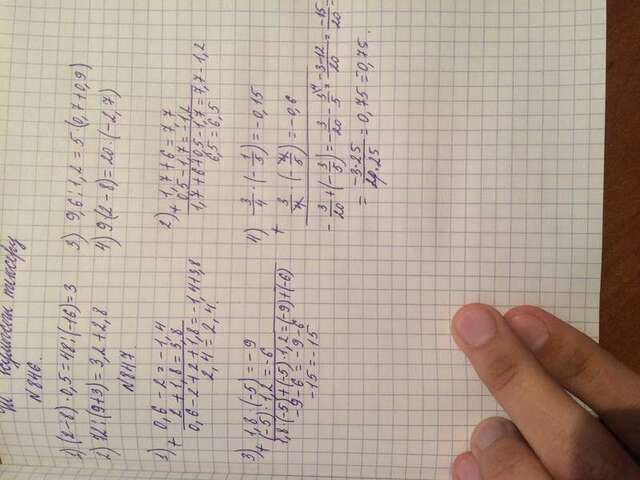 Үй тексеру
№846.
1) (8-2)·0,5=48:(-16)=3
2) 72:(9+3)=3,2+2,8
3) 9,6:1,2=5·(0,7+0,9)
4) 9(2-8)=20·(-2,7)
№847
1) + 0,6-2=-1,4
2+1,8=3,8
0,6-2+2+1,8=-1,4+3,8
2,4=2,4
2) + 1,7+6=7,7
0,5-1,7=-1,2
1,7+6+0,5-1,7=7,7-1,2
6,5=6,5
3) 1,8·(-5)=-9
+(-5)·1,2=-6
1,8(-5)+(-5)·1,2=(-9)+(-6)
-9-6=-9-6
-15=-15
4) 3/4·(-1/5)=-0,15
+ 3/4·(-4/5)=-0,6
-3/20+(-3/5)=-3/20-3/5=-3-12/20=-15/20=
=-3·25/20·25=0,75=0,75.